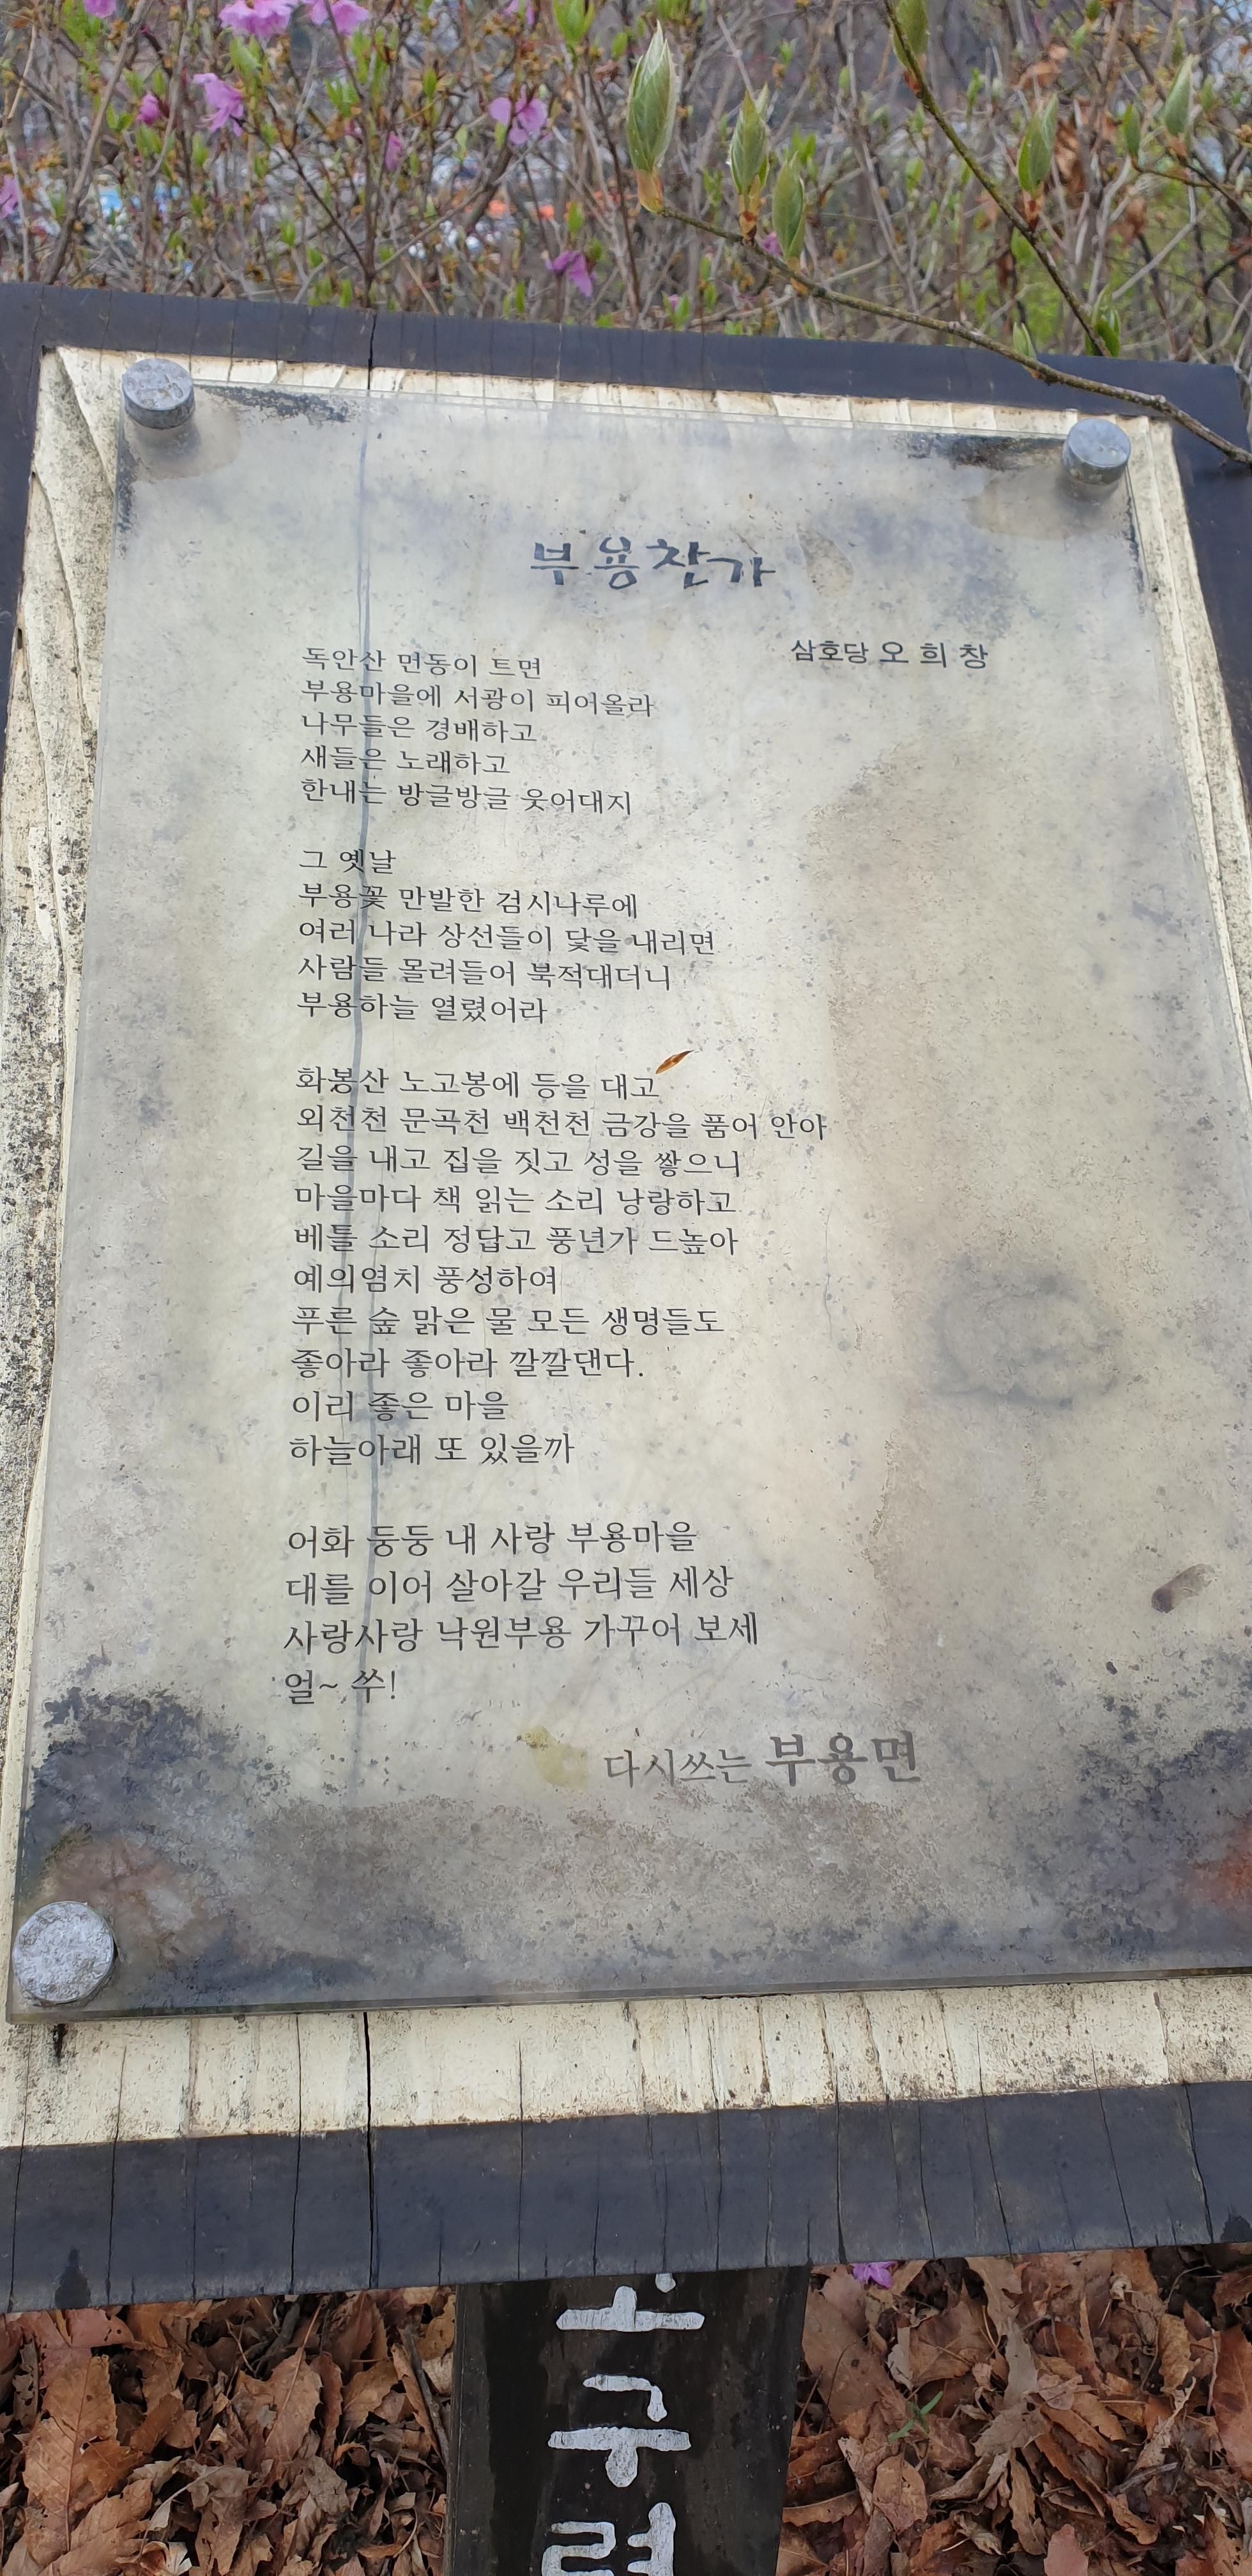 부용찬가
삼호당 오 희 창
독안산 먼동이 트면
부용마을에 서광이 피어올라
나무들은 경배하고
새들은 노래하고
한내는 방글방글 웃어대지
그 옛날
부용꽃 만발한 검시나루에
여러 나라 상선들이 닻을 내리면
사람들 몰려들어 북적대더니
부용하늘 열렸어라
화봉산 노고봉에 등을 대고
외천천 문곡천 백천천 금강을 품어 안아
길을 내고 집을 짓고 성을 쌓으니
마을마다 책 읽는 소리 낭랑하고
베틀 소리 정답고 풍년가 드높아
예의염치 풍성하여
푸른 숲 맑은 물 모든 생명들도
좋아라 좋아라 깔깔댄다.
이리 좋은 마을
하늘아래 또 있을까
어화 둥둥 내 사랑 부용마을
대를 이어 살아갈 우리들 세상
사랑사랑 낙원부용 가꾸어 보세
얼~ 쑤!
다시쓰는 부용면
구